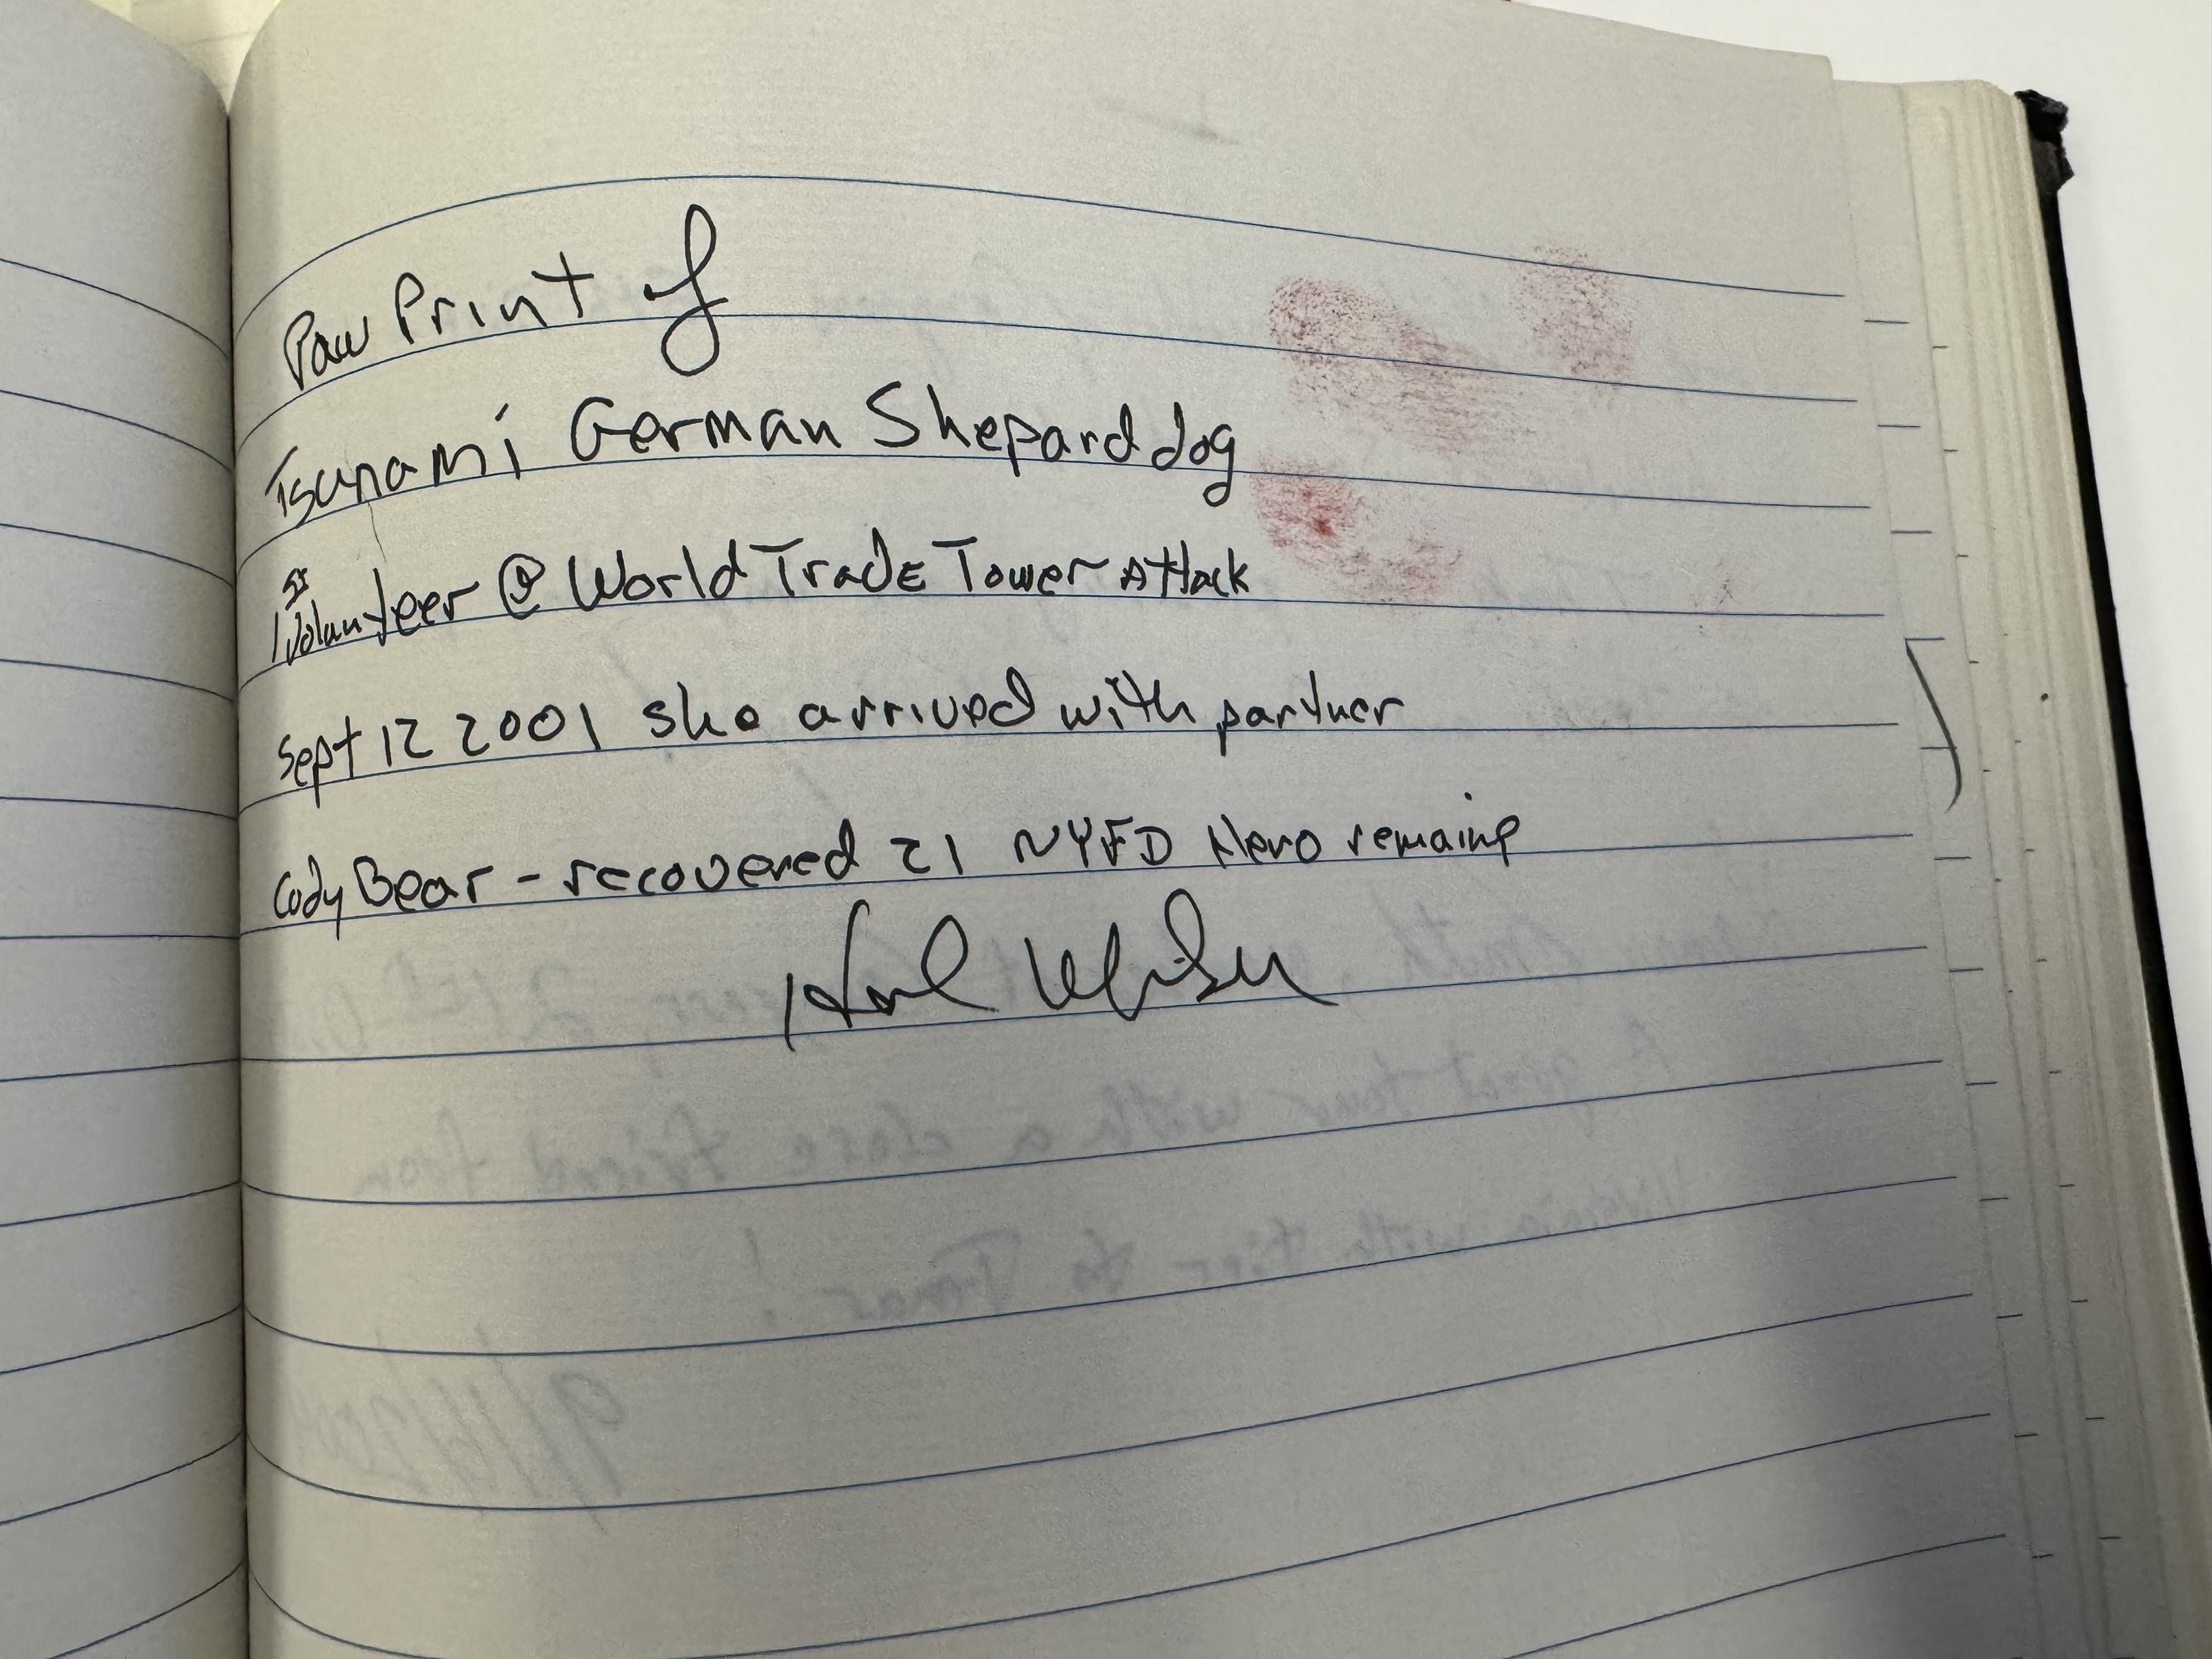 Paw Print of
Tsunami German Shepard dog
1st Volunteer @ World Trade Tower Attack
Sept 12 2001 she arrived with partner
Cody Bear - recovered 21 NYFD Hero remains